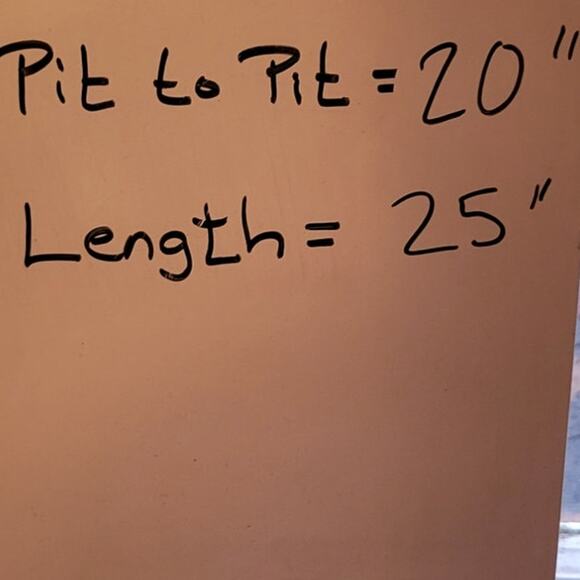 Pit to Pit = 20"
Length = 25"